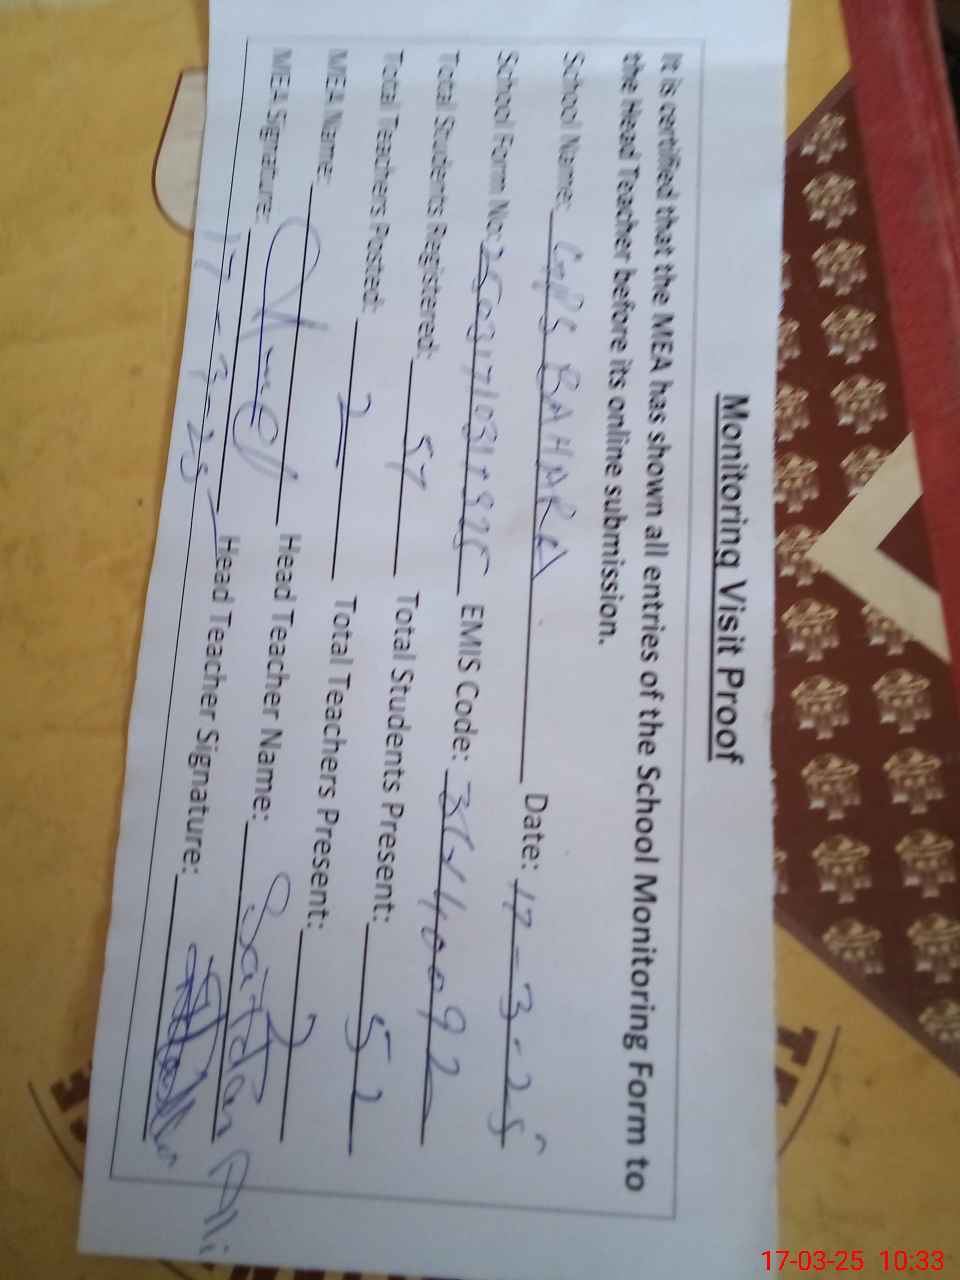 Monitoring Visit Proof
It is certified that the MEA has shown all entries of the School Monitoring Form to
the Head Teacher before its online submission.
School Name: GPS BAHARA Date: 17-3-25
School Form No: EMIS Code:
Total Students Registered: 57 Total Students Present: 52
Total Teachers Posted: 2 Total Teachers Present: 2
MEA Name: Head Teacher Name: Ali
MEA Signature: 17-3-25 Head Teacher Signature:
17-03-25 10:33